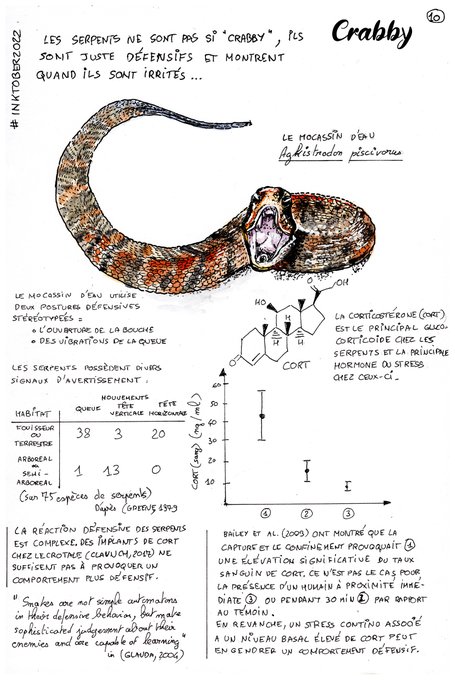 10
#INKTOBER2022
LES SERPENTS NE SONT PAS SI "CRABBY", ILS
SONT JUSTE DÉFENSIFS ET MONTRENT
QUAND ILS SONT IRRITÉS ...
Crabby
LE MOCASSIN D'EAU
Aghistrodon piscivorus
LE MOCASSIN D'EAU UTILISE
DEUX POSTURES DÉFENSIVES
STÉRÉOTYPÉES =
o L'OUVERTURE DE LA BOUCHE
o DES VIBRATIONS DE LA QUEUE
HO
O
OH
O
H
H
H
CORT
LA CORTICOSTÉRONE (CORT)
EST LE PRINCIPAL GLUCO-
CORTICOÏDE CHEZ LES
SERPENTS ET LA PRINCIPALE
HORMONE DU STRESS
CHEZ CEUX-CI.
LES SERPENTS POSSÈDENT DIVERS
SIGNAUX D'AVERTISSEMENT.
MOUVEMENTS
HABITAT QUEUE TÊTE VERTICALE TÊTE HORIZONTALE
FOUISSEUR
OU
TERRESTRE 38 3 20
ARBORÉAL
OU
SEMI-
ARBORÉAL 1 13 0
(sur 75 espèces de serpents)
D'après (GREENE, 1979
CORT (sang) (ng/mL)
60
50
40
30
20
10
1 2 3
LA RÉACTION DÉFENSIVE DES SERPENTS
EST COMPLEXE. DES IMPLANTS DE CORT
CHEZ LE CROTALE (CLAUNCH, 2017) NE
SUFISENT PAS À PROVOQUER UN
COMPORTEMENT PLUS DÉFENSIF.
"Snakes are not simple automatons
in their defensive behavior, but make
sophisticated judgement about their
enemies and are capable of learning"
in (GLAUDA, 2004)
BAILEY ET AL. (2009) ONT MONTRÉ QUE LA
CAPTURE ET LE CONFINEMENT PROVOQUAIT 1
UNE ÉLÉVATION SIGNIFICATIVE DU TAUX
SANGUIN DE CORT. CE N'EST PAS LE CAS POUR
LA PRÉSENCE D'UN HUMAIN À PROXIMITÉ IMMÉ-
DIATE 3 OU PENDANT 30 MIN 2 PAR RAPPORT
AU TÉMOIN.
EN REVANCHE, UN STRESS CONTINU ASSOCIÉ
A UN NIVEAU BASAL ÉLEVÉ DE CORT PEUT
ENGENDRER UN COMPORTEMENT DÉFENSIF.